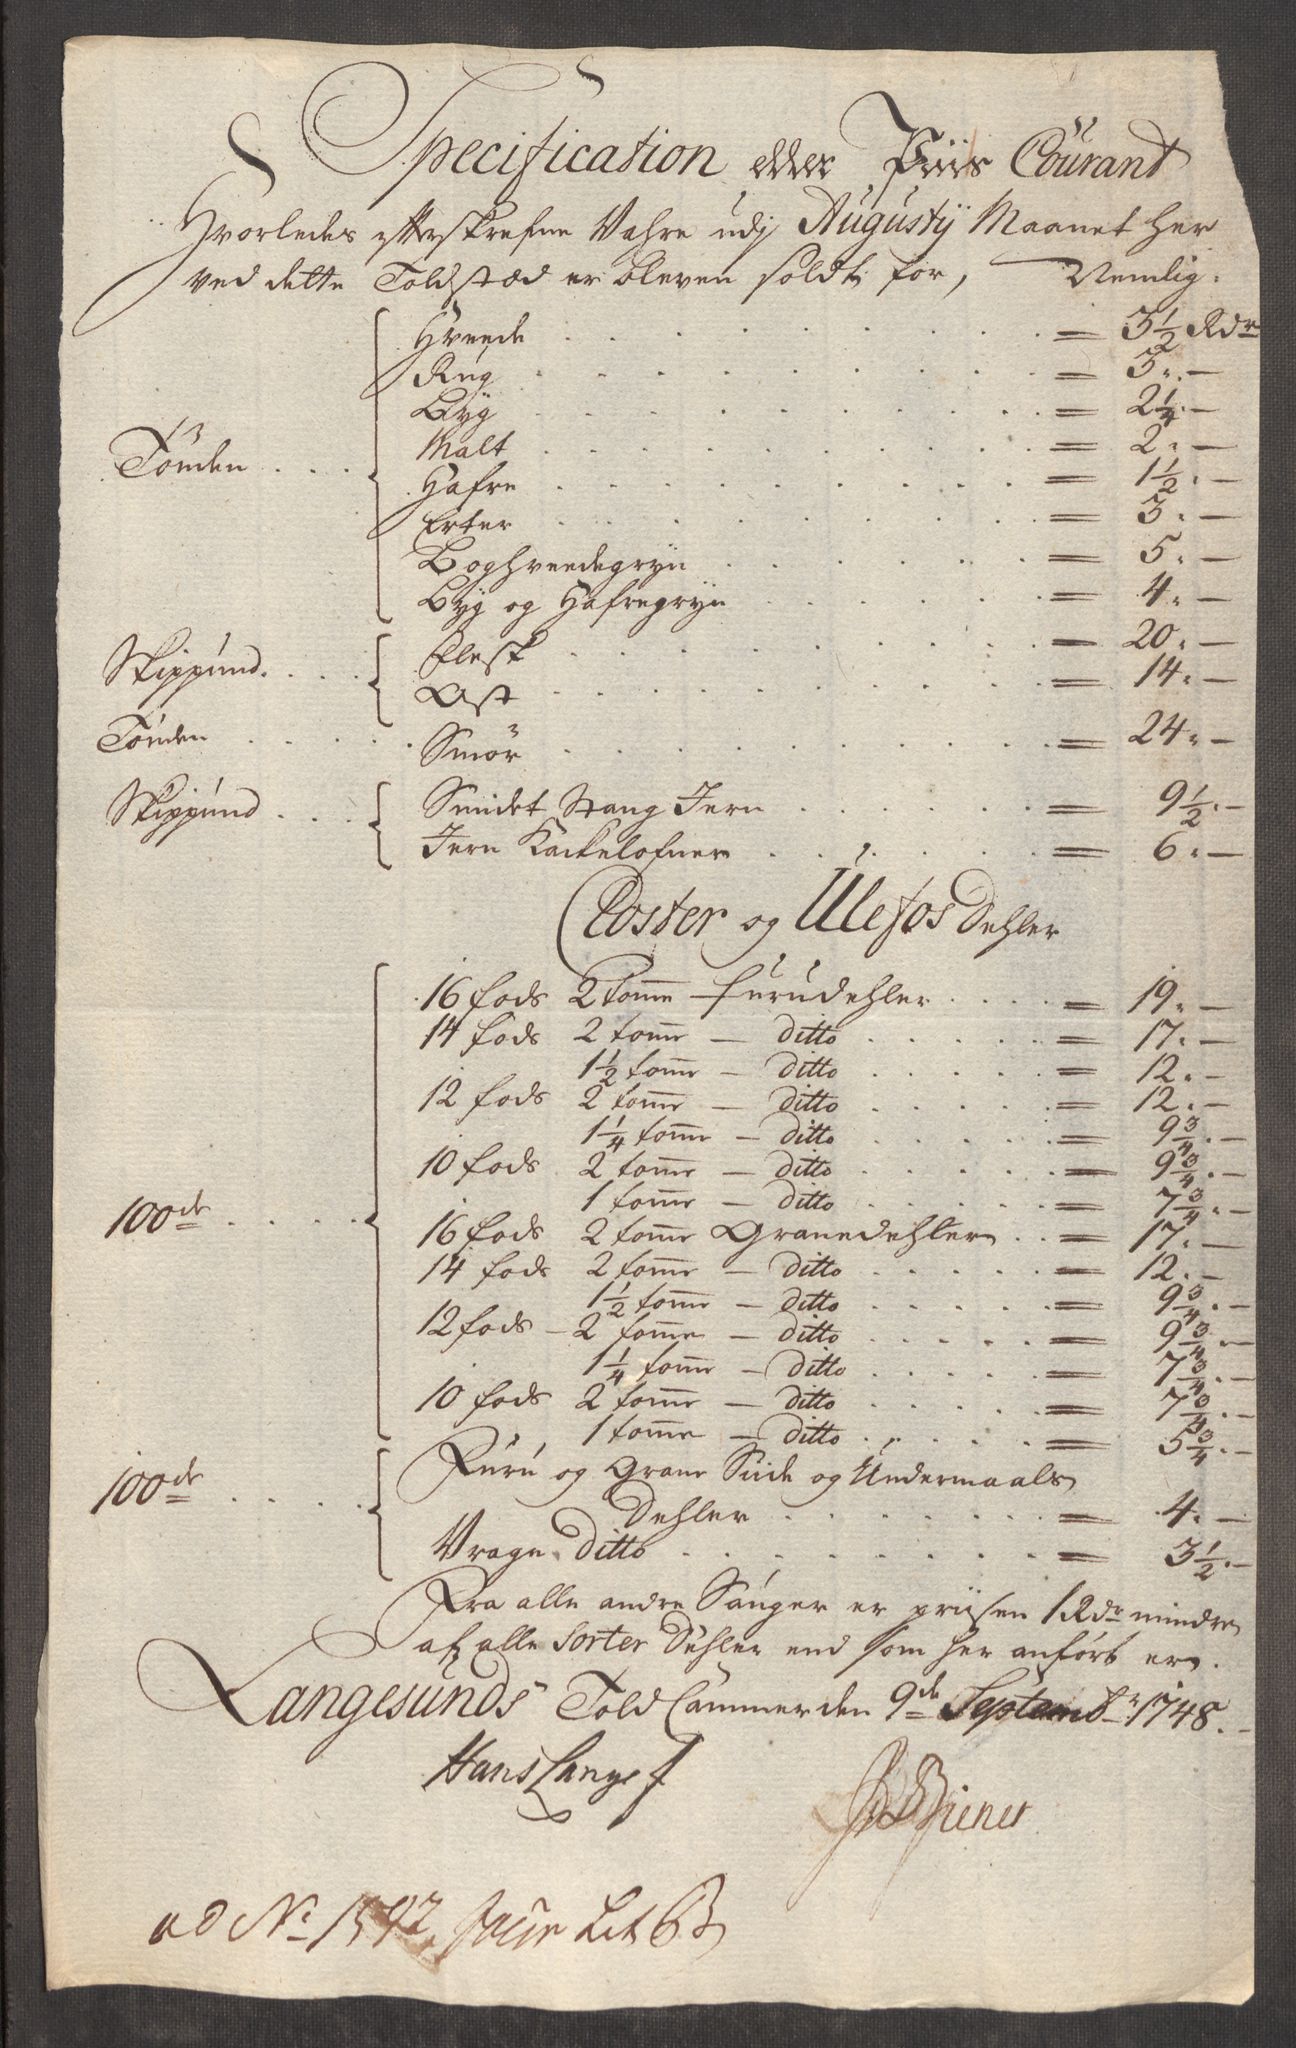 Specification eller Priis Courant
Hvorledes efterskrefne Vahre udj Augustij Maanet her
ved dette Toldstæd er bleven soldt for, Nemlig:
Hveede = 3 1/2 Rdr
Rug = 3 „ —
Byg = 2 1/4 „ —
Malt = 2 „ —
Tønden Hafre = 1 1/2 „ —
Erter = 3 „ —
Boghveedegryn = 5 „ —
Byg og Hafregryn = 4 „ —
Skippund Flesk = 20 „ —
Ost = 14 „ —
Tønden Smør = 24 „ —
Skippund Smidet Stang Jern = 9 1/2 „ —
Jern Kackelofner = 6 „ —
Closter og Ulefos Dehler
16 fods 2 tomme furudehler = 19 „ —
14 fods 2 tomme — ditto = 17 „ —
1 1/2 tomme — ditto = 12 „ —
12 fods 2 tomme — ditto = 12 „ —
1 1/4 tomme — ditto = 9 3/4 „ —
10 fods 2 tomme — ditto = 9 3/4 „ —
1 tomme — ditto = 7 3/4 „ —
100de 16 fods 2 tomme Granedehler = 17 „ —
14 fods 2 tomme — ditto = 12 „ —
1 1/2 tomme — ditto = 9 3/4 „ —
12 fods — 2 tomme — ditto = 9 3/4 „ —
1 1/4 tomme — ditto = 7 3/4 „ —
10 fods 2 tomme — ditto = 7 3/4 „ —
1 tomme — ditto = 5 3/4 „ —
100de Furu og Grane Siide og Undermaals
Dehler = 4 „ —
Vrage Ditto = 3 1/2 „ —
Fra alle andre Sauger er priisen 1 Rdr mindre
af alle Sorter Dehler end som her anført er.
Langesunds Told Cammer den 9de Septembr 1748.
Hans Lange
Biener
ad No 1592 Jour Lit B